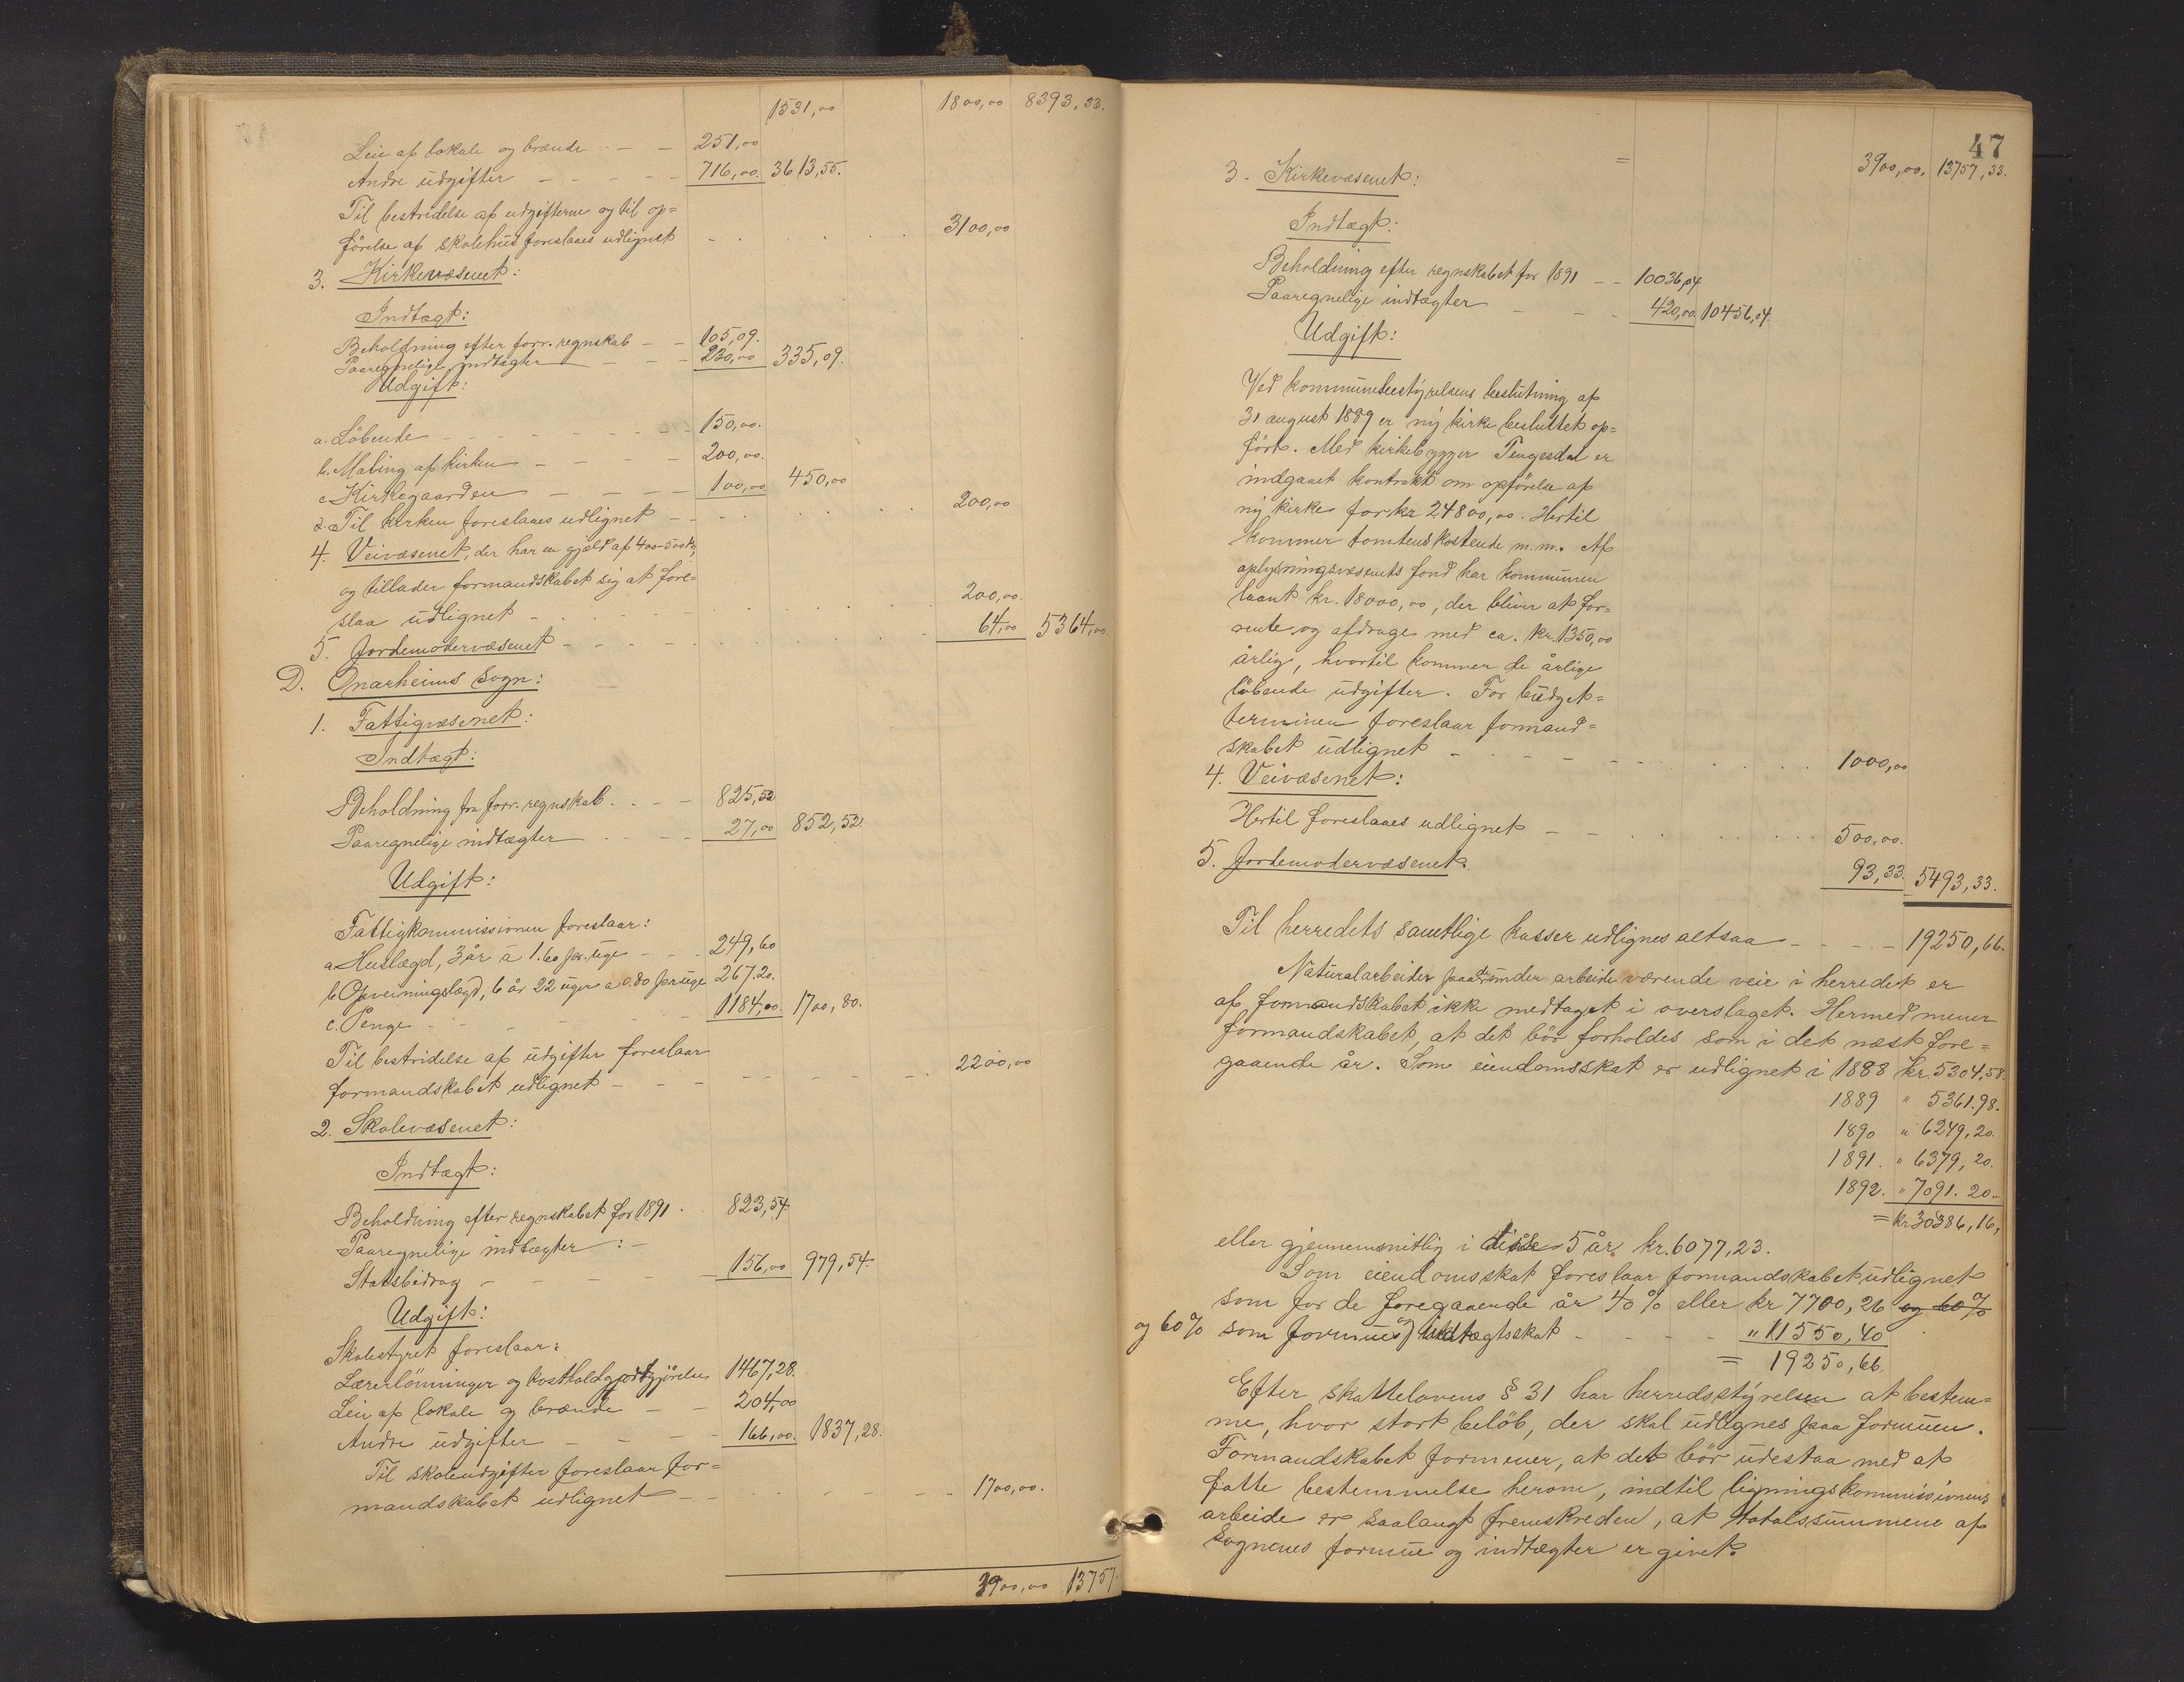 1531,00 1800,00 8393,33.
Leie af lokale og brænde - - 251,00
Andre udgifter - - - - - 716,00. 3613,55.
Til bestridelse af udgifterne og til op=
førelse af skolehus foreslaaes udlignet - . . . . . 3100,00
3. Kirkevæsenet:
Indtægt:
Beholdning efter forr. regnskab - - 105,09.
Paaregnelige indtægter - - 230,00 335,09.
Udgift:
a. Löbende - - - - - - - 150,00.
b. Maling af kirken - - - - 200,00.
c. Kirkegaarden - - - - 100,00 450,00
d. Til kirken foreslaaes udlignet - - . . . . 200,00
4. Veivæsenet, der har en gjæld af 400-500 kr,
og tillader formandskabet sig at fore=
slaa udlignet - . . . . . 200,00.
5. Jordemodervæsenet - - - - . . . . . 64,00 5364,00.
D. Onarheims Sogn:
1. Fattigvæsenet:
Indtægt:
Beholdning fra forr. regnskab. - - - 825,52
Paaregnelige indtægter - - - 27,00 852,52.
Udgift:
Fattigkommissionen foreslaar:
a. Huslægd, 3 år à 1.60 pr. uge - - - 249,60
b. Opveiningslægd, 6 år 22 uger a 0.80 pr uge 267.20.
c. Penge - - - - - - 1184,00. 1700,80.
Til bestridelse af udgifter foreslaar
formandskabet udlignet - - - - - - - - - 2200,00
2. Skolevæsenet:
Indtægt:
Beholdning efter regnskabet for 1891 . 823,54
Paaregnelige indtægter : -
Statsbidrag - - - - - 156,00 979,54.
Udgift:
Skolestyret foreslaar:
Lærerlönninger og kostholdgodtgjörelse 1467,28.
Leie af lokale og brænde - - 204,00
Andre udgifter - - - - 166,00. 1837,28.
Til skoleudgifter foreslaar for=
mandskabet udlignet - - . . . - - - 1700,00.
3900,00 13757.
47
= 3900,00. 13757,33.
3. Kirkevæsenet:
Indtægt:
Beholdning efter regnskabet for 1891 - - 10036,04
Paaregnelige indtægter - - - 420,00. 10456,04.
Udgift:
Ved kommunebestyrelsens beslutning af
31 august 1889 er ny kirke besluttet op=
fört. Med kirkebygger Tengesdal er
indgaaet kontrakt om opförelse af
ny kirke for kr 24800,00. Hertil
kommer tomtens kostende m.m. Af
oplysningsvæsenets fond har kommunen
laant kr. 18000,00, der bliver at for=
rente og afdrage med ca. kr. 1350,00
årlig, hvortil kommer de årlige
löbende udgifter. For budget=
terminen foreslaar formand=
skabet udlignet - . - - - . . . . . 1000,00
4. Veivæsenet:
Hertil foreslaaes udlignet - - . . . . . 500,00.
5. Jordemodervæsenet. 93,33. 5493,33.
Til herredets samtlige kasser udlignes altsaa - - - - 19250,66.
Naturalarbeider paa de under arbeide værende veie i herredet er
af formandskabet ikke medtaget i overslaget. Hermed mener
formandskabet, at det bör forholdes som i det næst fore=
gaaende år. Som eiendomsskat er udlignet i 1888 kr. 5304,58.
1889 " 5361.98.
1890 " 6249,20.
1891. " 6379,20.
1892. " 7091.20.
= kr 30386,16,
eller gjennemsnitlig i disse 5 år kr. 6077,23.
Som eiendomsskat foreslaar formandskabet udlignet
som for de foregaaende år 40 % eller kr 7700,26 og 60%
og 60% som formues og indtægtsskat - - - - - " 11550,40
= 19250,66
Efter skattelovens § 31 har herredsstyrelsen at bestem=
me, hvor stort belöb, der skal udlignes paa formuen.
Formandskabet formener, at det bör udestaa med at
fatte bestemmelse herom, indtil ligningskommissionens
arbeide er saalangt fremskreden, at totalssummene af
Sognenes formue og indtægter er givet.